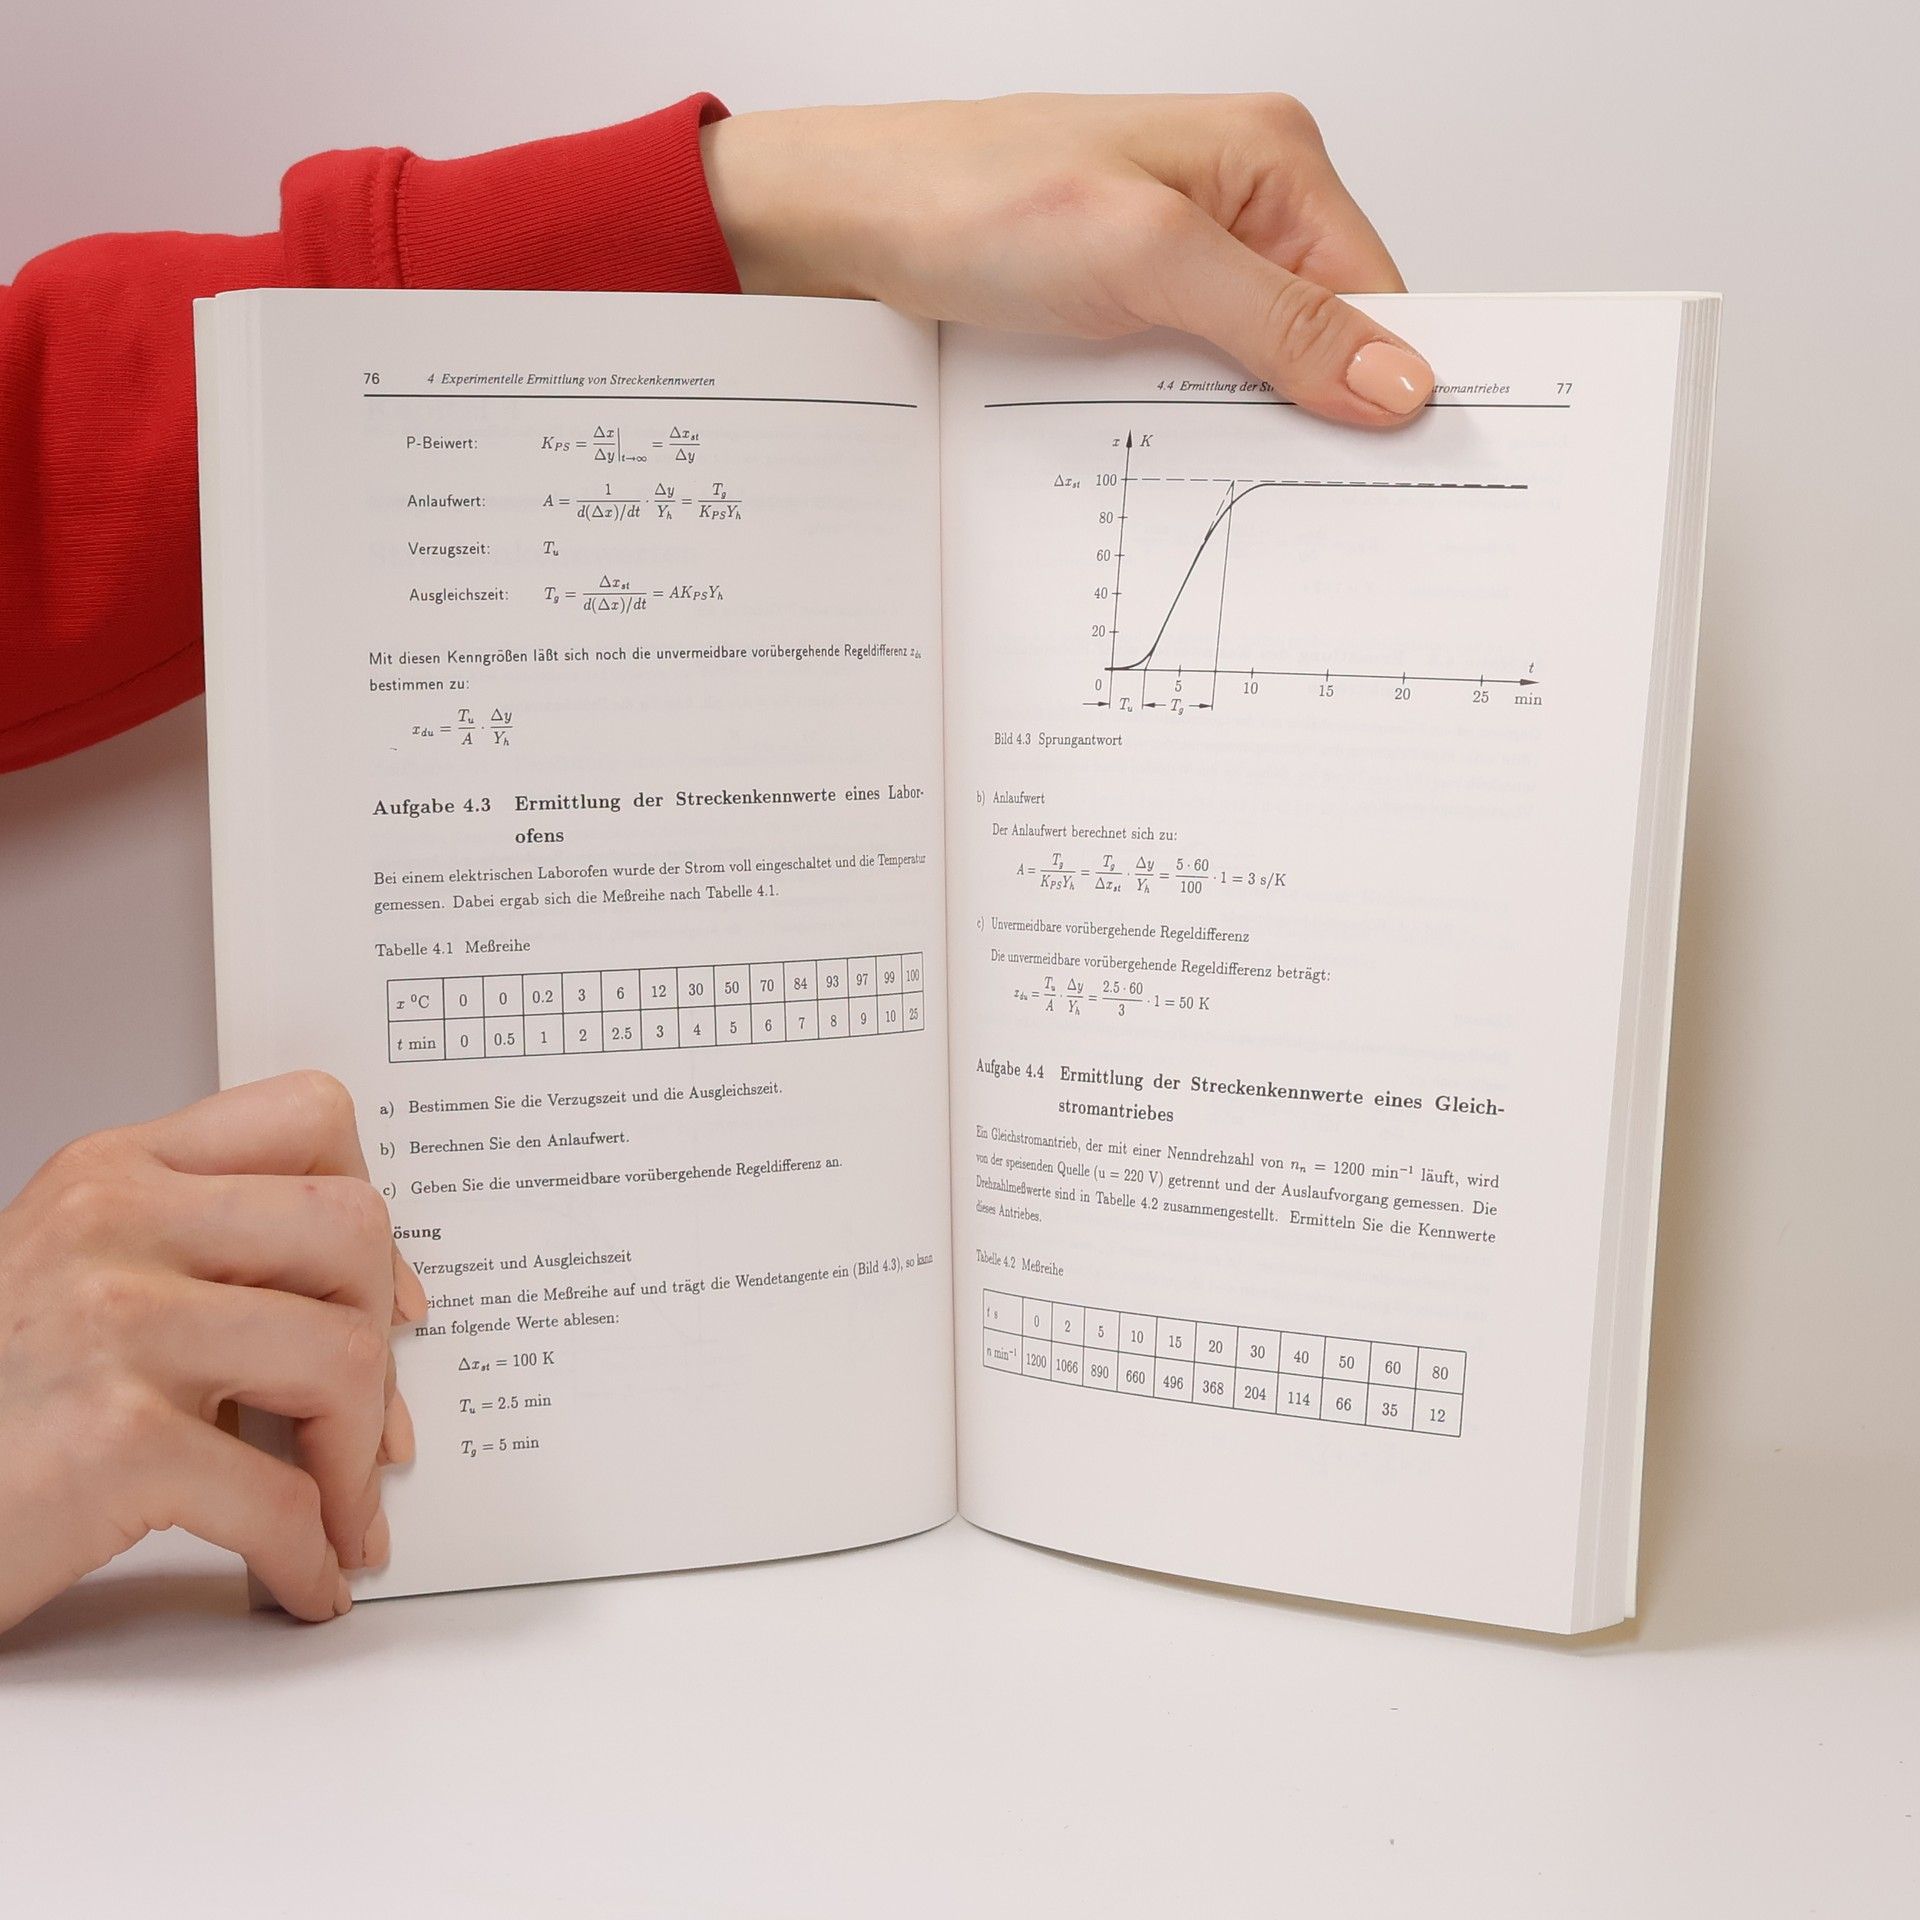 76 4 Experimentelle Ermittlung von Streckenkennwerten
P-Beiwert: K_PS = Δx/Δy |t→∞ = Δx_st/Δy
Anlaufwert: A = 1/(d(Δx)/dt) · Δy/Y_h = T_g/(K_PS Y_h)
Verzugszeit: T_u
Ausgleichszeit: T_g = Δx_st/(d(Δx)/dt) = AK_PS Y_h
Mit diesen Kenngrößen läßt sich noch die unvermeidbare vorübergehende Regeldifferenz x_du
bestimmen zu:
x_du = T_u/A · Δy/Y_h
Aufgabe 4.3 Ermittlung der Streckenkennwerte eines Labor-
ofens
Bei einem elektrischen Laborofen wurde der Strom voll eingeschaltet und die Temperatur
gemessen. Dabei ergab sich die Meßreihe nach Tabelle 4.1.
Tabelle 4.1 Meßreihe
x °C 0 0 0.2 3 6 12 30 50 70 84 93 97 99 100
t min 0 0.5 1 2 2.5 3 4 5 6 7 8 9 10 25
a) Bestimmen Sie die Verzugszeit und die Ausgleichszeit.
b) Berechnen Sie den Anlaufwert.
c) Geben Sie die unvermeidbare vorübergehende Regeldifferenz an.
ösung
Verzugszeit und Ausgleichszeit
eichnet man die Meßreihe auf und trägt die Wendetangente ein (Bild 4.3), so kann
man folgende Werte ablesen:
Δx_st = 100 K
T_u = 2.5 min
T_g = 5 min
4.4 Ermittlung der St stromantriebes 77
x K
Δx_st 100
80
60
40
20
0 5 10 15 20 25 t min
T_u T_g
Bild 4.3 Sprungantwort
b) Anlaufwert
Der Anlaufwert berechnet sich zu:
A = T_g/(K_PS Y_h) = T_g/Δx_st · Δy/Y_h = 5·60/100 · 1 = 3 s/K
c) Unvermeidbare vorübergehende Regeldifferenz
Die unvermeidbare vorübergehende Regeldifferenz beträgt:
x_du = T_u/A · Δy/Y_h = 2.5·60/3 · 1 = 50 K
Aufgabe 4.4 Ermittlung der Streckenkennwerte eines Gleich-
stromantriebes
Ein Gleichstromantrieb, der mit einer Nenndrehzahl von n_n = 1200 min⁻¹ läuft, wird
von der speisenden Quelle (u = 220 V) getrennt und der Auslaufvorgang gemessen. Die
Drehzahlmeßwerte sind in Tabelle 4.2 zusammengestellt. Ermitteln Sie die Kennwerte
dieses Antriebes.
Tabelle 4.2 Meßreihe
t s 0 2 5 10 15 20 30 40 50 60 80
n min⁻¹ 1200 1066 890 660 496 368 204 114 66 35 12